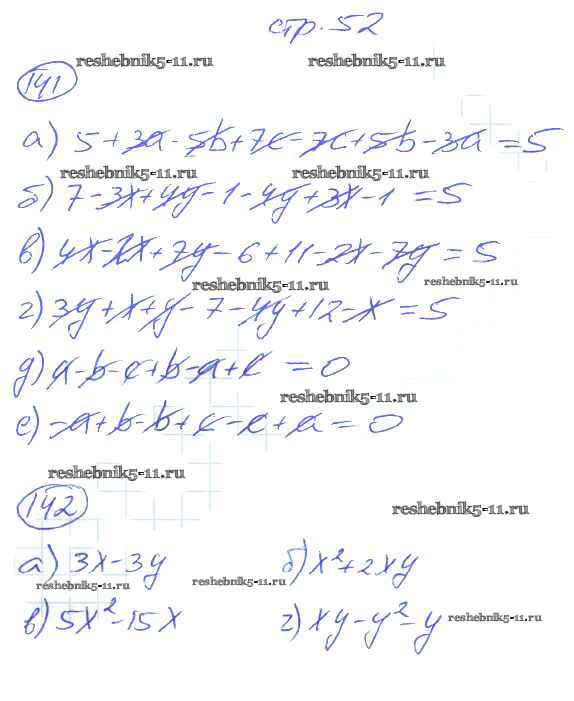 стр. 52
reshebnik5-11.ru reshebnik5-11.ru
141
а) 5 + 3a - 5b + 7c - 7c + 5b - 3a = 5
reshebnik5-11.ru reshebnik5-11.ru
б) 7 - 3x + 4y - 1 - 4y + 3x - 1 = 5
в) 4x - 2x + 7y - 6 + 11 - 2x - 7y = 5
reshebnik5-11.ru reshebnik5-11.ru
г) 3y + x + y - 7 - 4y + 12 - x = 5
д) a - b - c + b - a + c = 0
reshebnik5-11.ru
е) -a + b - b + c - c + a = 0
reshebnik5-11.ru
142
reshebnik5-11.ru
а) 3x - 3y б) x² + 2xy
reshebnik5-11.ru reshebnik5-11.ru
в) 5x² - 15x г) xy - y² - y
reshebnik5-11.ru